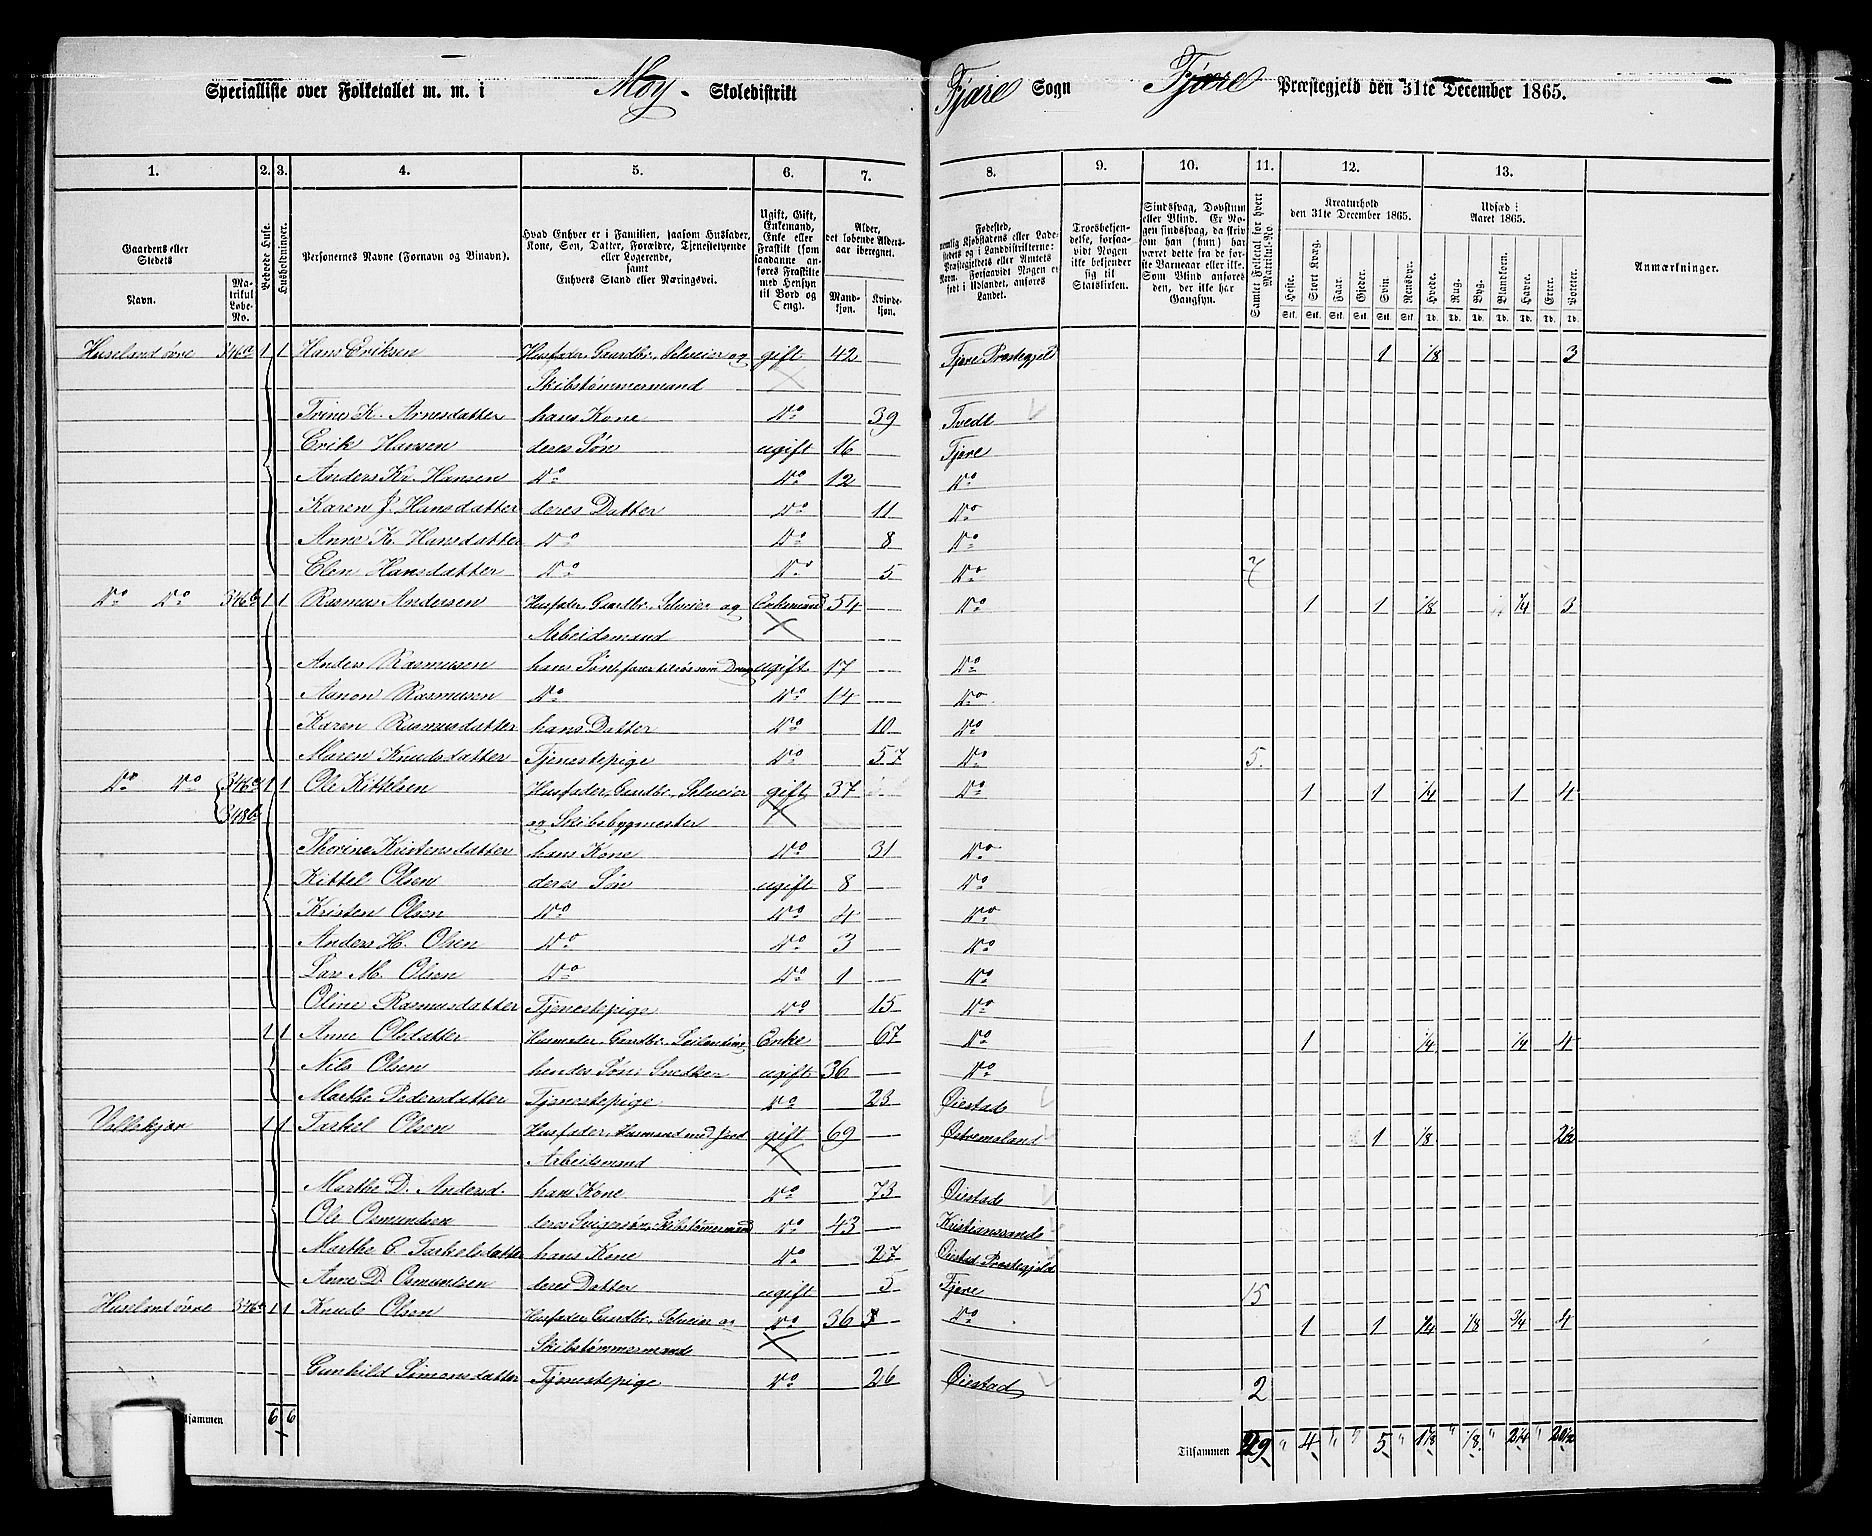 Specialliste over Folketallet m. m. i Moy Skoledistrikt Fjære Sogn Fjære Præstegjeld den 31te December 1865.
1. 2. 3. 4. 5. 6. 7. 8. 9. 10. 11. 12. 13.
Gaardens eller Stedets
Navn. Matrikul Løbe-No.
Beboede Huse.
Husholdninger.
Personernes Navne (Fornavn og Binavn).
Hvad Enhver er i Familien, saasom Husfader, Kone, Søn, Datter, Forældre, Tjenestetyende eller Logerende, samt Enhvers Stand eller Næringsvei.
Ugift, Gift, Enkemand, Enke eller Fraskilt (som saadanne anføres Fraskilte med Hensyn til Bord og Seng).
Alder, det løbende Aldersaar iberegnet.
Mandkjøn. Kvindekjøn.
Fødested,
Troesbekjendelse, forsaavidt Nogen ikke bekjender sig til Statskirken.
Sindssvag, Døvstum eller Blind. Er Nogen sindssvag, da skriv om han (hun) har været dette fra første Barneaar eller ikke. Som Blind anføres den, der ikke har Gangsyn.
Samlet Folketal for hvert Matrikul-No.
Kreaturhold den 31te December 1865.
Heste. Stort Kvæg. Faar. Gjeder. Svin. Rensdyr.
Udsæd i Aaret 1865.
Hvede. Rug. Byg. Blandkorn. Havre. Erter. Poteter.
Anmærkninger.
Huseland øvre 346a 1 1 Hans Eriksen Husfader, Gaardbr., Selveier og gift 42 Fjære Præstegjeld 1 1/8 3
Skibstømmermand
Trine K. Arnesdatter hans Kone Do 39 Tvedt
Erik Hansen deres Søn ugift 16 Fjære
Anders Kr. Hansen Do Do 12 Do
Karen J. Hansdatter deres Datter Do 11 Do
Anne K. Hansdatter Do Do 8 Do
Elen Hansdatter Do Do 5 Do 7
Do Do 346b 1 1 Rasmus Andersen Husfader, Gaardbr., Selveier og Enkemand 54 Do 1 1 1/8 1/4 3
Arbeidsmand
Anders Rasmusen hans Søn, ugift 17 Do
Aanon Rasmusen Do Do 14 Do
Karen Rasmusdatter hans Datter Do 10 Do
Maren Knudsdatter Tjenestepige Do 57 Do 5
Do Do 1 1 Ole Kittelsen Husfader, Gardbr., Selveier gift 37 Do 1 1 1/4 1 4
348b og Skibsbygmester
Thorine Kristensdatter hans Kone Do 31 Do
Kittel Olsen deres Søn ugift 8 Do
Kristen Olsen Do Do 4 Do
Anders H. Olsen Do Do 3 Do
Lars M. Olsen Do Do 1 Do
Oline Rasmusdatter Tjenestepige Do 15 Do
1 1 Anne Olsdatter Husmoder, Gardbr., Enke 67 Do 1 1/4 1/4 4
Nils Olsen hendes Søn, Snedker ugift 36 Do
Marthe Pedersdatter Tjenestepige Do 23 Øiestad
Vallekjær 1 1 Tarkel Olsen Husfader, Husmand med Jord gift 69 Østremoland 1 1/8 2 1/2
Arbeidsmand
Marthe D. Andersd. hans Kone Do 73 Øiestad
Ole Osmundsen deres Svigersøn, Skibstømmermand Do 43 Kristianssand
Marthe C. Tarkelsdatter hans Kone Do 27 Øiestad Præstegjeld
Anne D. Osmundsen deres Datter ugift 5 Fjære 15
Huseland øvre 1 1 Knud Olsen Husfader, Gardbr., Selveier og Do 36 Do 1 1 1/4 1/8 3/4 4
Skibstømmermand
Gunhild Simonsdatter Tjenestepige Do 26 Øiestad 2
Tilsammen 6 6 Tilsammen 29 " 4 " " 5 " 1 1/8 " 1/8 " 2 1/4 " 20 1/2